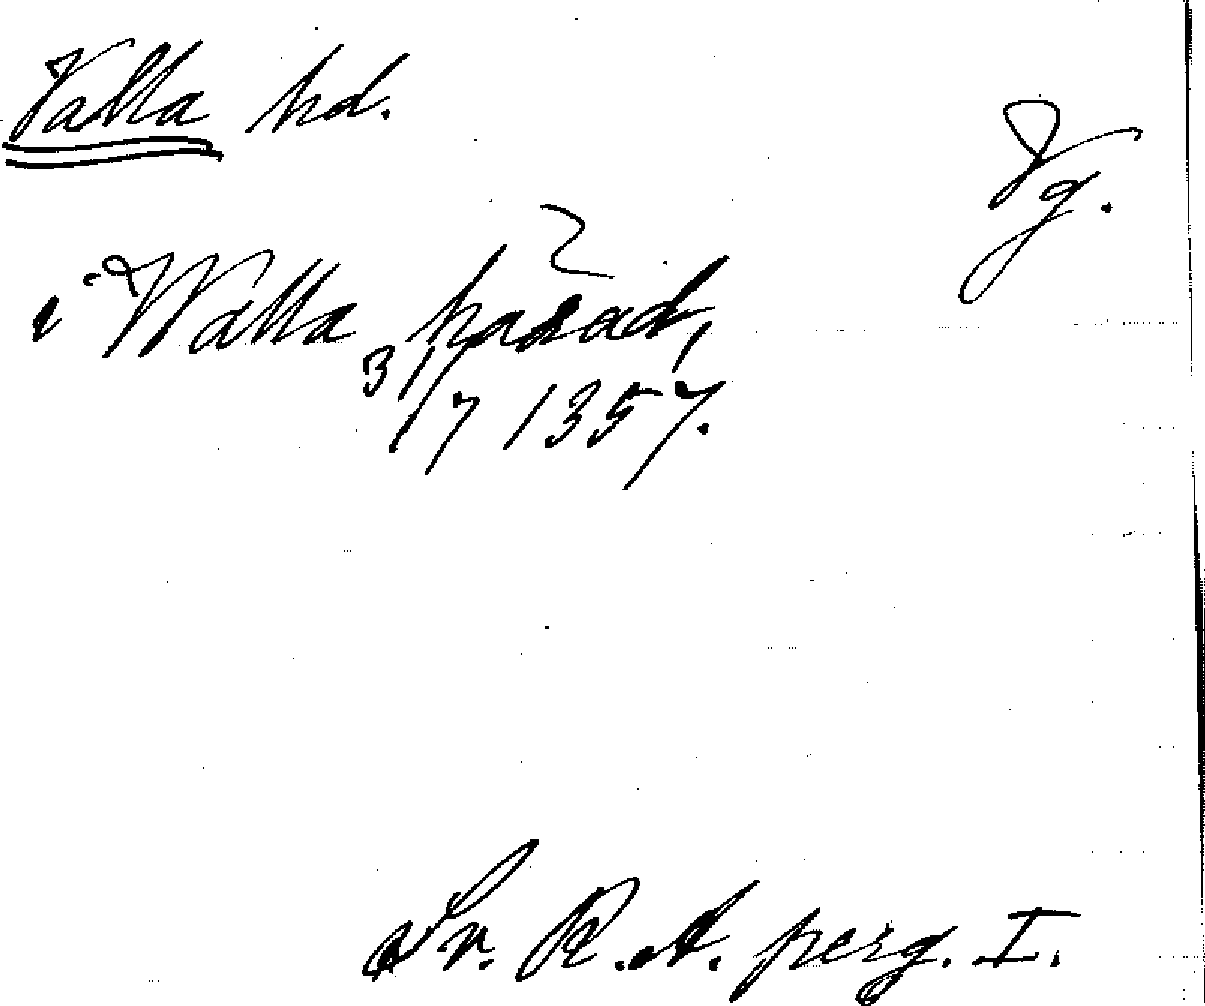 Valla hd.
Vg.
i Walla hærad,
31/7 1357.
Sv. R. A. perg. I.